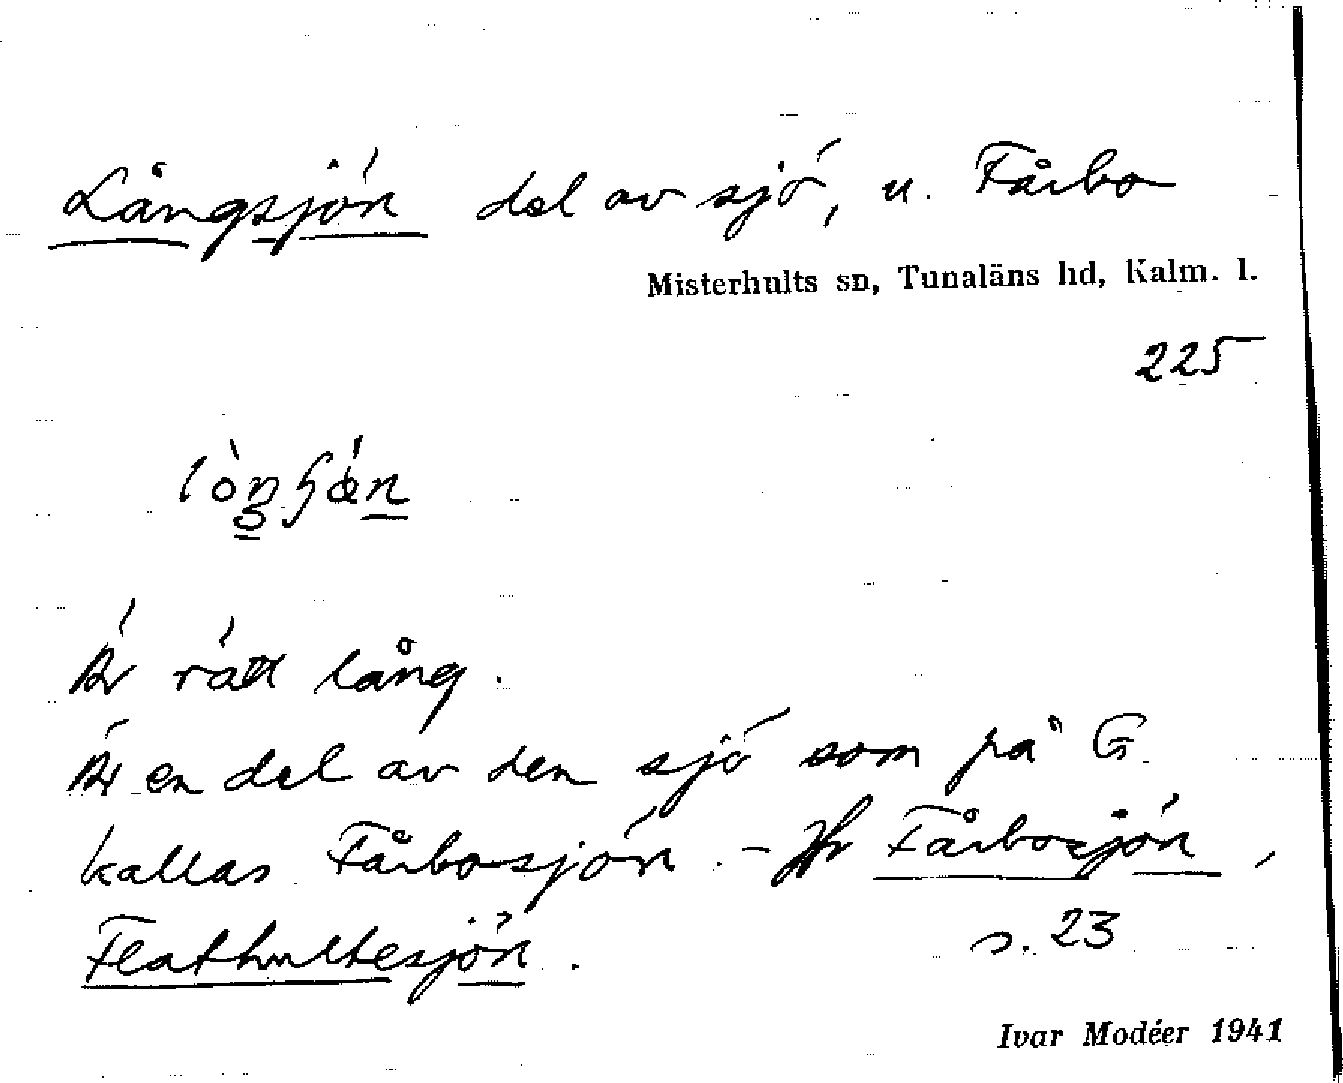 Långsjön del av sjö, u. Fårbo
Misterhults sn, Tunaläns hd, Kalm. l.
225
Är rätt lång.
Är en del av den sjö som på G.
kallas Fårbosjön. - Jfr Fårbosjön,
Flathultesjön. s. 23
Ivar Modéer 1941